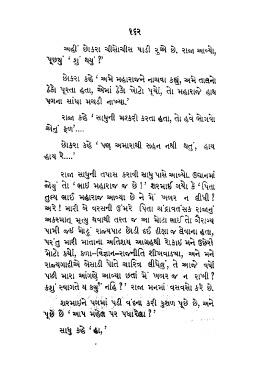 ૧૬૨
અહીં છોકરા ચીસોચીસ પાડી રુએ છે. રાજા આવ્યો,
પૂછ્યું ' શું થયું ?'
છોકરા કહે ' અમે મહારાજને નાચવા કહ્યું, અમે તાલનો
ઠેકો પૂરતા હતા, એમાં ઠેકો ખોટો પૂર્યો, તો મહારાજે હાથ
પગના સાંધા મચડી નાખ્યા.'
રાજા કહે ' સાધુની મશ્કરી કરતા હતા, તો હવે ભોગવો
એનું ફળ....
છોકરા કહે ' પણ અમારાથી સહન નથી થતું, હાય
હાય રે....'
રાજા સાધુની તપાસ કરાવી સાધુ પાસે આવ્યો. ઉદ્યાનમાં
જોયું તો ' ભાઈ મહારાજ જ છે !' શરમાઈ ગયો કે ' પિતા
તુલ્ય ભાઈ મહારાજ આવ્યા છે ને મેં ખબર ન લીધી ?
અરે ! મારી એ વરસની ઉંમરે પિતા ચંદ્રાવતંસક રાજાનું
અકસ્માત્ મૃત્યુ થવાથી તરત જ આ મોટા ભાઈ તો વૈરાગ્ય
પામી જઈ મોટું રાજ્યપાટ છોડી દઈ દીક્ષા જ લેવાના હતા,
પરંતુ મારી માતાના અતિશય આગ્રહથી રોકાઈ મને ઉછેરી
મોટો કર્યો, કળા-વિજ્ઞાન-રાજનીતિ શીખવાડયા, અને મને
રાજ્યગાદીએ બેસાડી પોતે ચારિત્ર લીધેલું, તે આજે વર્ષો
પછી મારા આંગણે આવ્યા છતાં મેં ખબર જ ન રાખી ?
કશું સ્વાગતે ય કર્યું નહિ ?' રાજા મનમાં વસવસો કરે છે.
શરમાઈને પગમાં પડી વંદના કરી કુશળ પૂછે છે, અને
પૂછે છે ' આપ મહેલ પર પધારેલા ?'
સાધુ કહે ' હા,'